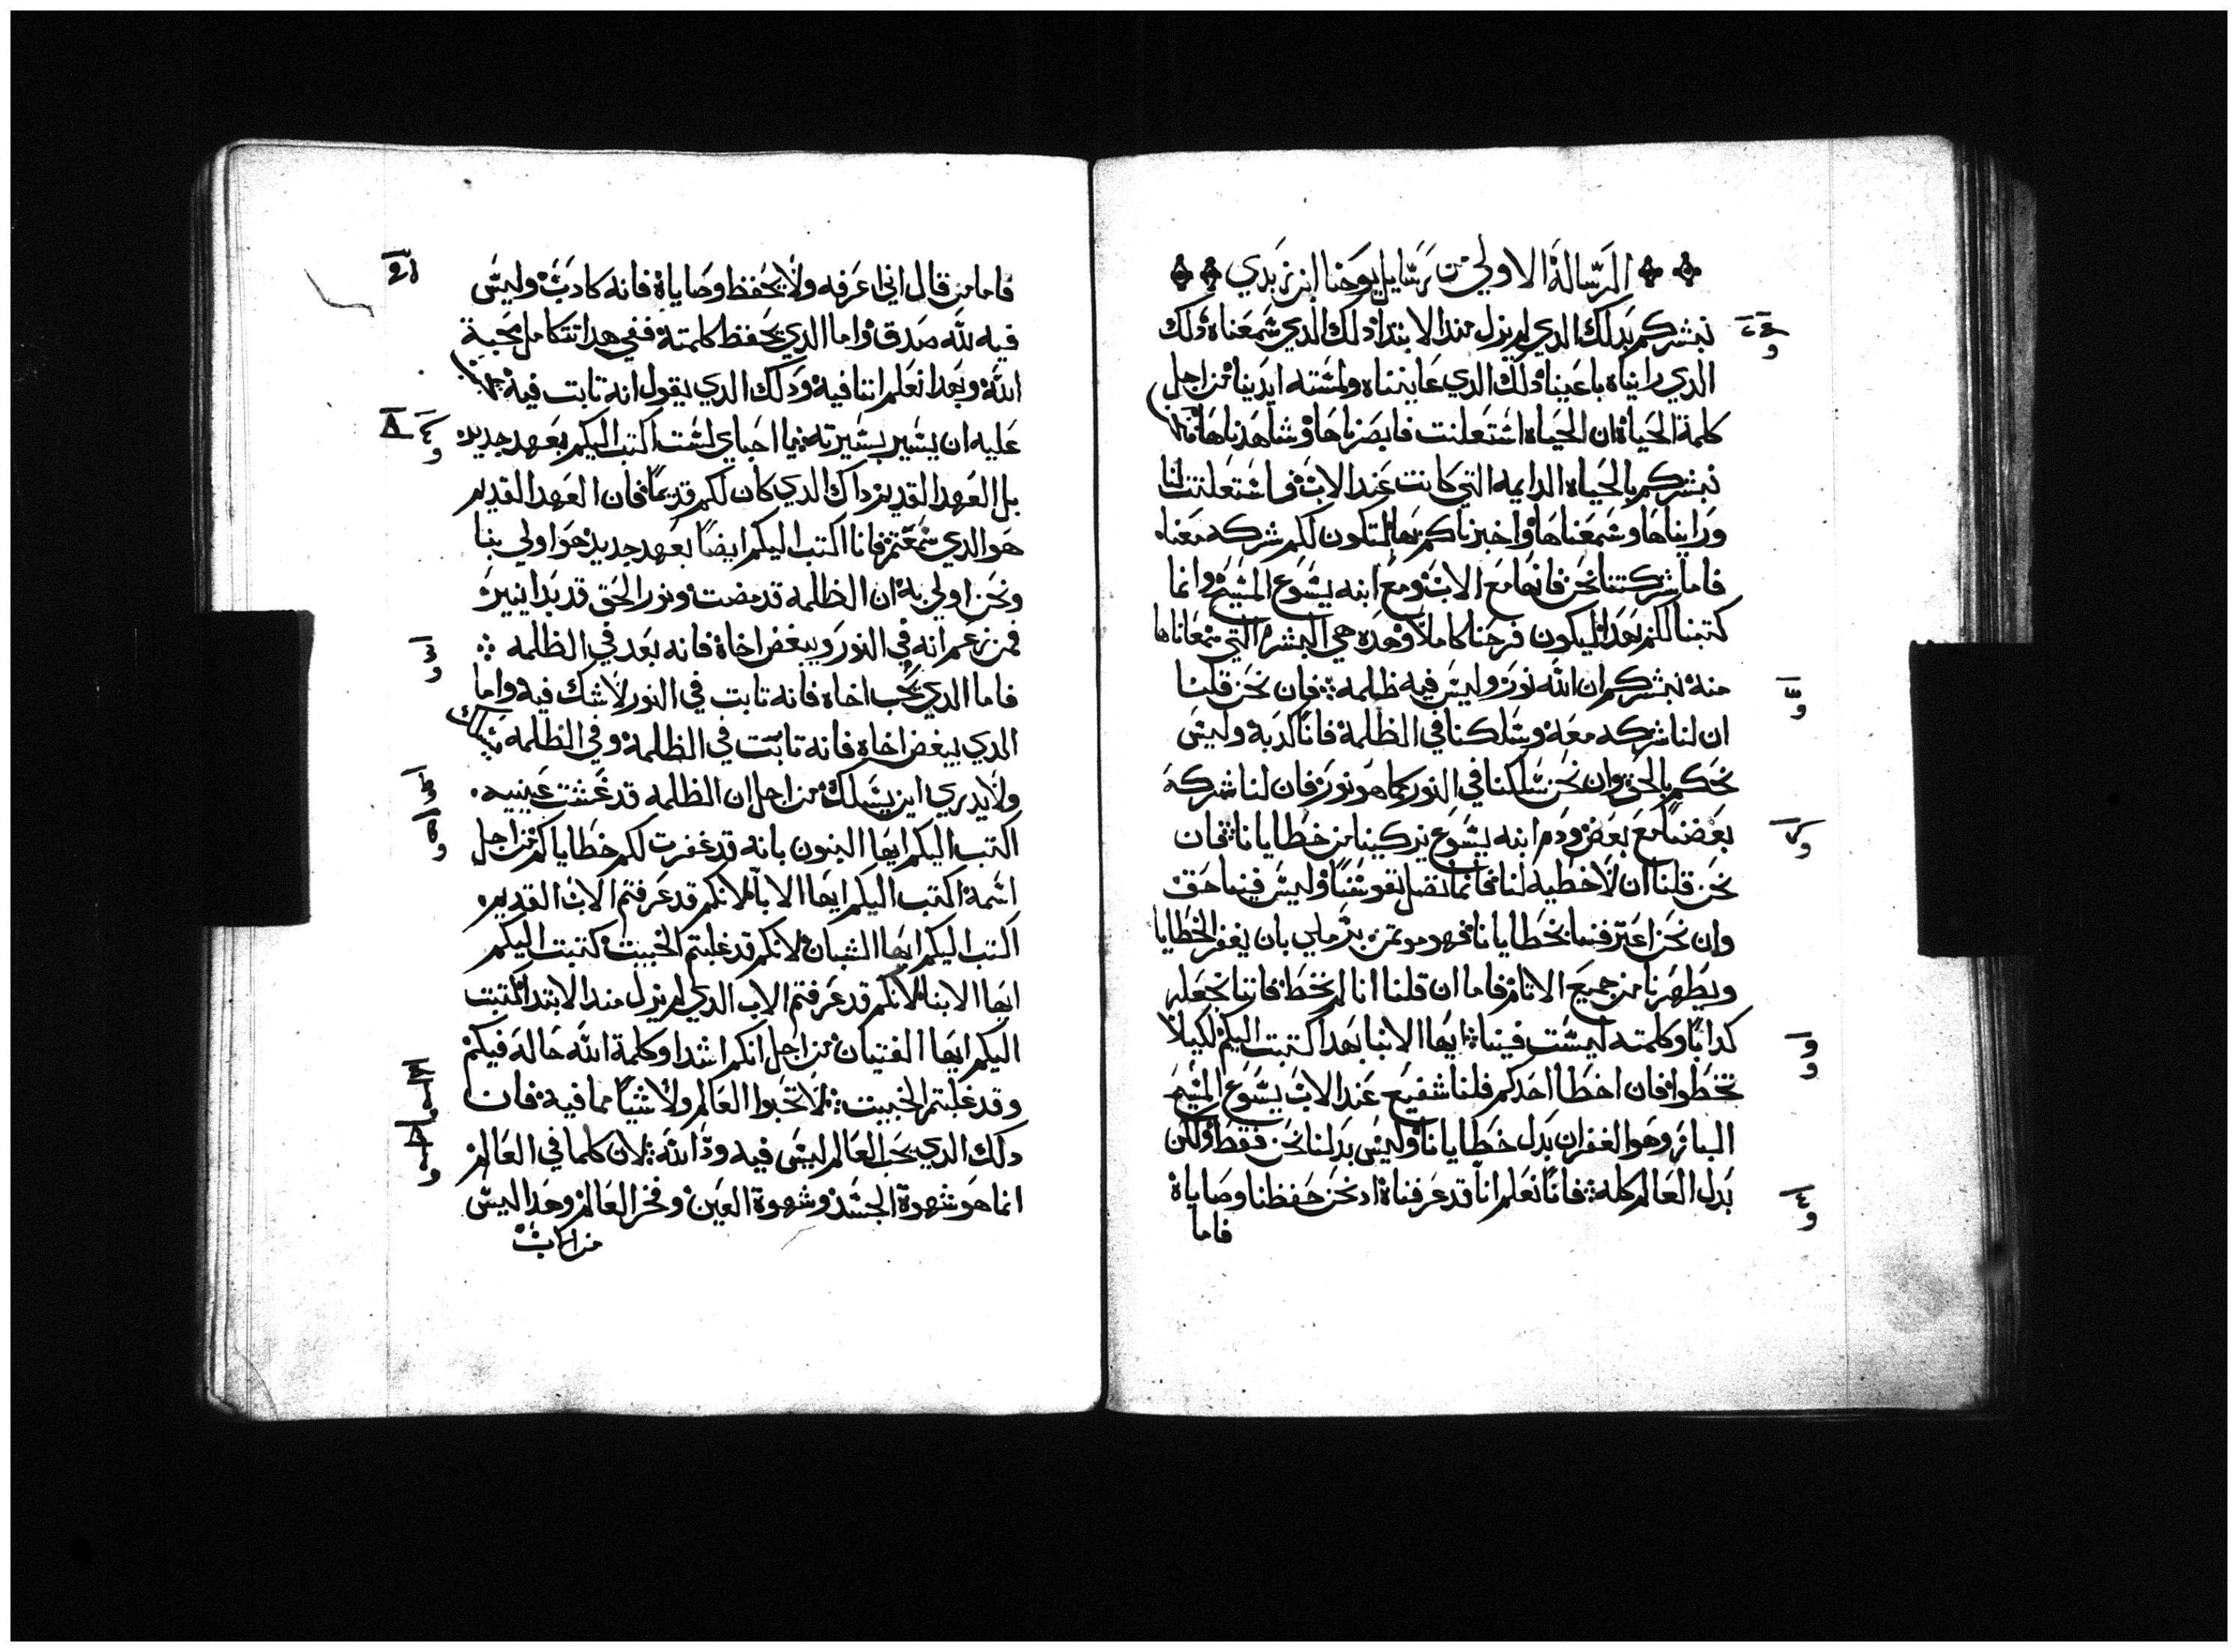 الرسالة الاولي من رسايل يوحنا ابن زبدي
نبشركم بدلك الدي لم يزل مند الابتدا دلك الدي سمعناه دلك
الدي رايناه باعيننا دلك الدي عايناه ولمسته ايدينا من اجل
كلمة الحياة ان الحياه استعلنت فابصرناها وشاهدناها
نبشركم بالحياه الدايمه التي كانت عند الاب واستعلنت لنا
ورايناها وسمعناها واخبرناكم بها لتكون لكم شركه معناه
فاما شركتنا نحن فانها مع الاب ومع ابنه يسوع المسيح وانما
كتبنا لكم هدا ليكون فرحنا كاملا وهده هي البشري التي سمعناها
منه نبشركم ان الله نور وليس فيه ظلمه فان نحن قلنا
ان لنا شركه معه وسلكنا في الظلمة فانا كدبة وليس
نحكم بالحق وان نحن سلكنا في النور كما هو نور فان لنا شركة
بعضنا مع بعض ودم ابنه يسوع يزكينا من خطايانا فان
نحن قلنا ان لا خطيه لنا فانما نضل نفوسنا وليس فينا حق
وان نحن اعترفنا بخطايانا فهو موتمن بر ملي بان يغفر الخطايا
ويطهرنا من جميع الاتام فاما ان قلنا انا لم نخط فاننا نجعله
كدابا وكلمته ليست فينا ايها الابنا بهدا كتبت اليكم لكيلا
تخطوا فان اخطا احدكم فلنا شفيع عند الاب يسوع المسيح
البار وهو الغفران بدل خطايانا وليس بدلنا نحن فقط ولكن
بدل العالم كله فانا نعلم انا قد عرفناه اد نحن حفظنا وصاياه
فاما
فاما من قال اني اعرفه ولا يحفظ وصاياه فانه كادب وليس
فيه لله صدق واما الدي يحفظ كلمته ففي هدا تتكامل محبة
الله وبهدا نعلم اننا فيه ودلك الدي يقول انه تابت فيه
عليه ان يسير بسيرته يا احباي لست اكتب اليكم بعهد جديد
بل العهد القديم داك الدي كان لكم قديما فان العهد القديم
هو الدي سمعتم فانا اكتب اليكم ايضا بعهد جديد هو اولي بنا
ونحن اولي به ان الظلمه قد مضت ونور الحق قد بدا ينير
فمن زعم انه في النور ويبغض اخاه فانه بعد في الظلمه
فاما الدي يحب اخاه فانه تابت في النور لا شك فيه واما
الدي يبغض اخاه فانه تابت في الظلمة وفي الظلمه يسلك
ولا يدري اين يسلك من اجل ان الظلمه قد غشت عينيه
اكتب اليكم ايها البنون بانه قد غفرت لكم خطاياكم من اجل
اسمه اكتب اليكم ايها الابا لانكم قد عرفتم الاب القديم
اكتب اليكم ايها الشبان لانكم قد غلبتم الخبيت كتبت اليكم
ايها الابنا لانكم قد عرفتم الاب الدي لم يزل مند الابتدا كتبت
اليكم ايها الفتيان من اجل انكم اشدا وكلمة الله حالة فيكم
وقد غلبتم الخبيت لا تحبوا العالم ولا شيا مما فيه فان
دلك الدي يحب العالم ليس فيه ود الله لان كلما في العالم
انما هو شهوة الجسد وشهوة العين وفخر العالم وهدا ليس
من الاب